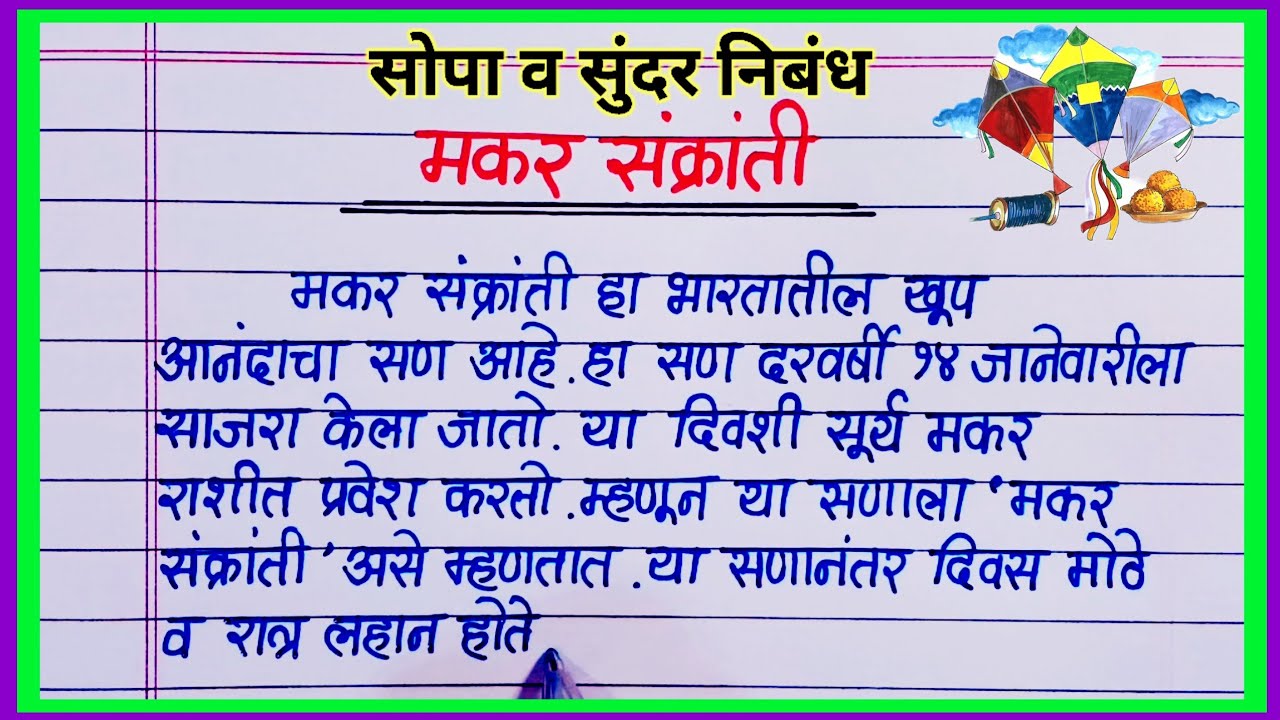 सोपा व सुंदर निबंध
मकर संक्रांती
मकर संक्रांती हा भारतातील खूप
आनंदाचा सण आहे. हा सण दरवर्षी १४ जानेवारीला
साजरा केला जातो. या दिवशी सूर्य मकर
राशीत प्रवेश करतो. म्हणून या सणाला 'मकर
संक्रांती' असे म्हणतात. या सणानंतर दिवस मोठे
व रात्र लहान होते